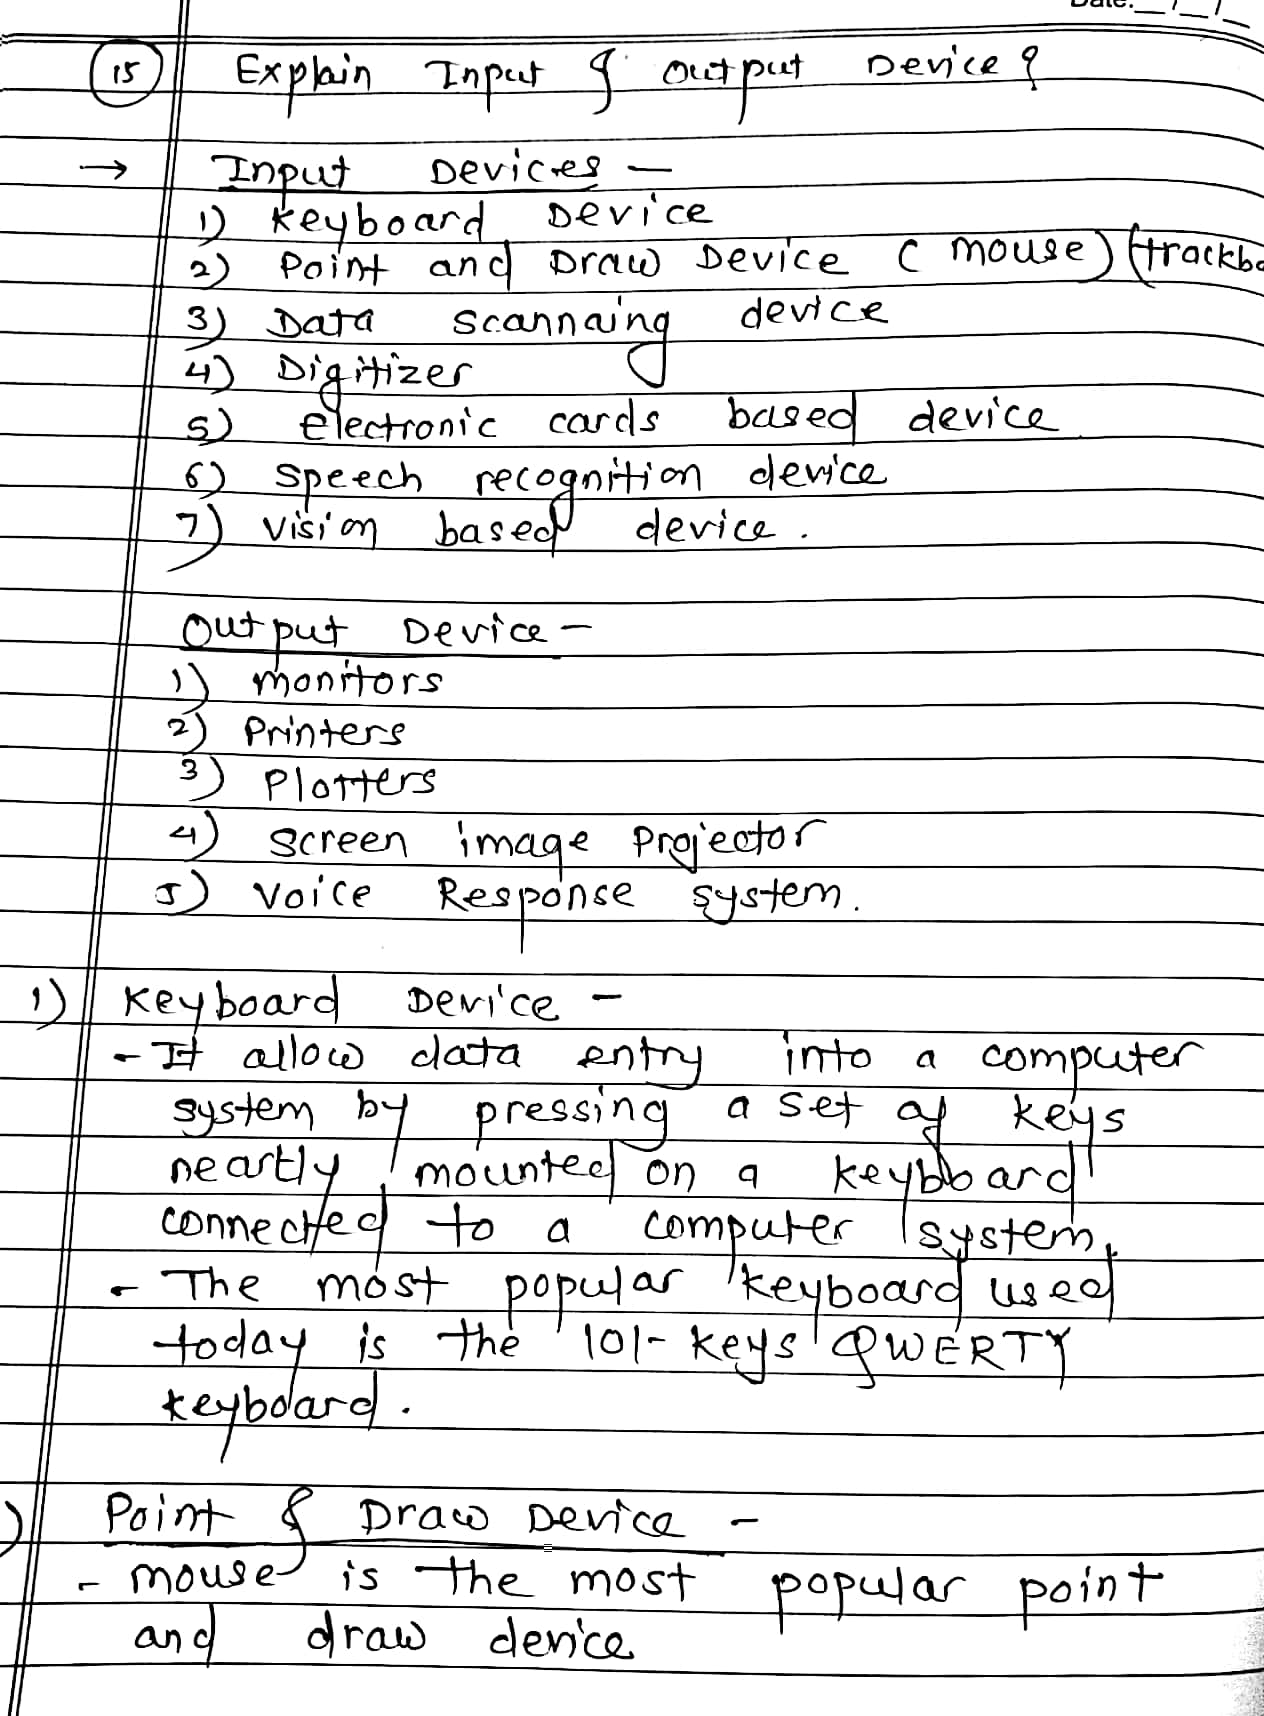 Date: __/__/__
15 Explain Input & Output Device?
→ Input Devices -
1) Keyboard Device
2) Point and Draw Device (mouse) (trackba
3) Data scannaing device
4) Digitizer
5) electronic cards based device
6) speech recognition device
7) vision based device.
Output Device -
1) monitors
2) Printers
3) Plotters
4) screen image projector
5) voice Response system.
1) Keyboard Device -
- It allow data entry into a computer
system by pressing a set of keys
neartly mounted on a keyboard
connected to a computer system,
- The most popular keyboard used
today is the 101-keys QWERTY
keyboard.
) Point & Draw Device -
- mouse is the most popular point
and draw device